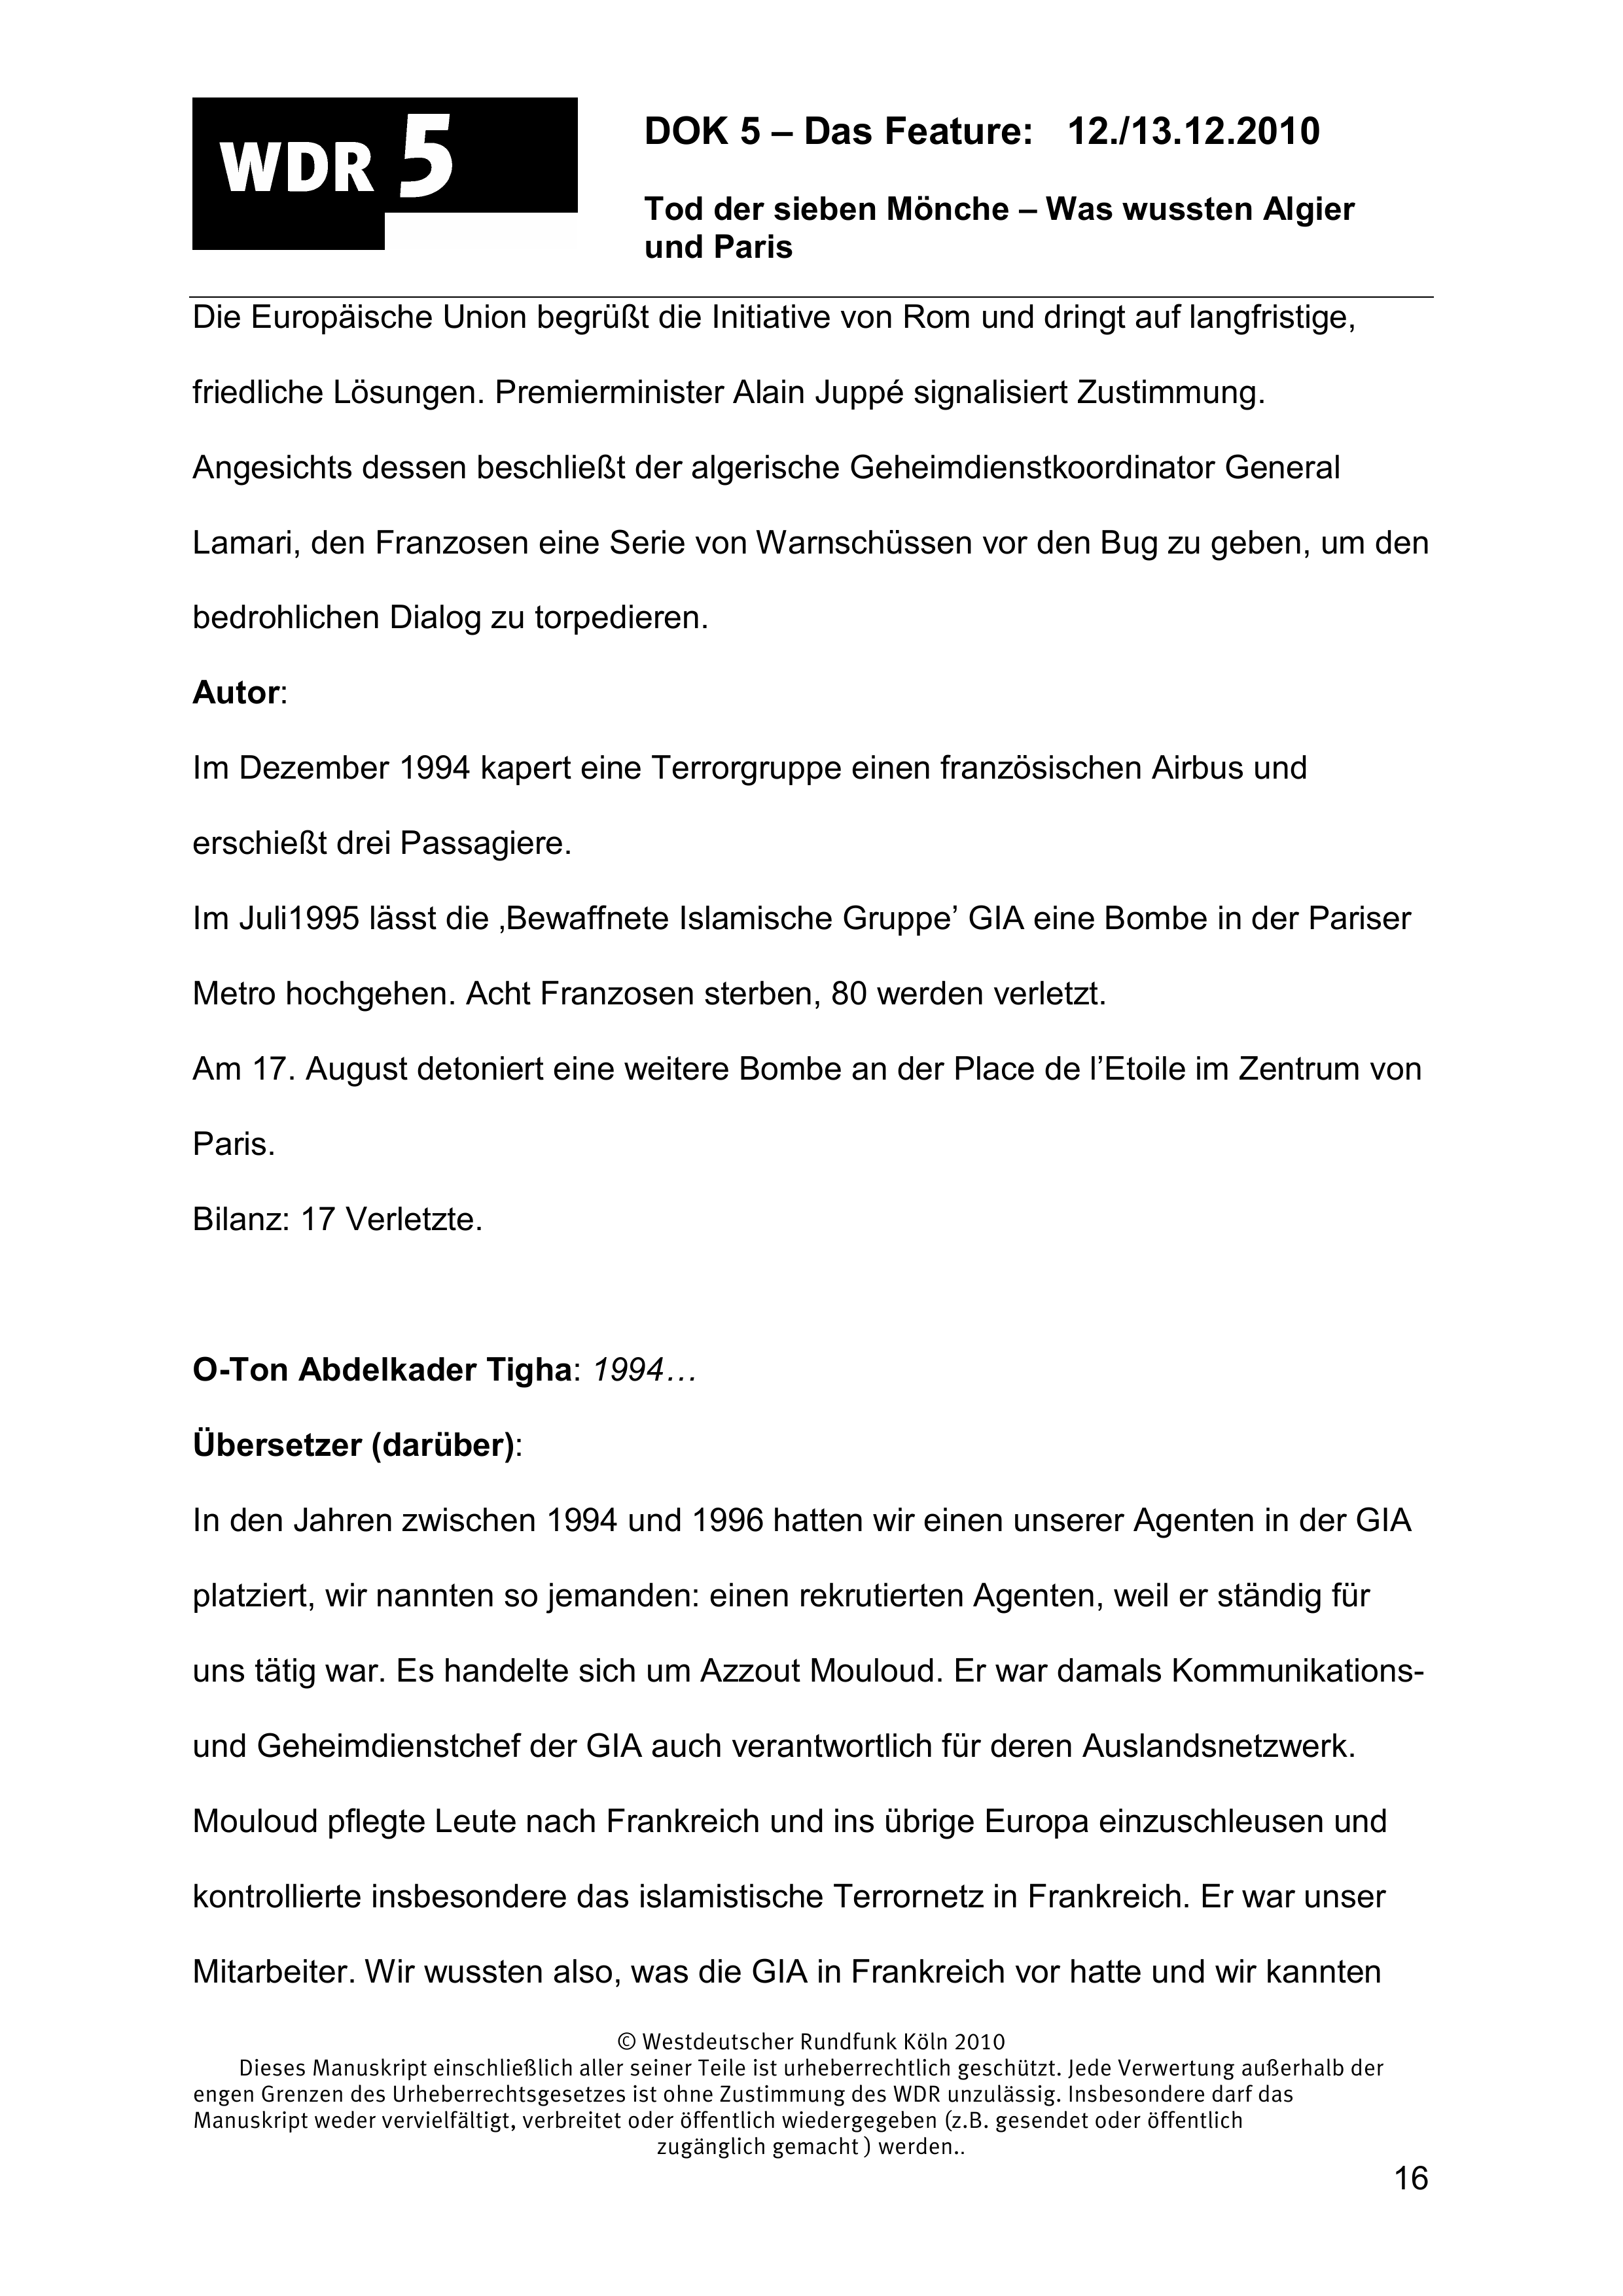 WDR 5
DOK 5 – Das Feature: 12./13.12.2010
Tod der sieben Mönche – Was wussten Algier
und Paris
Die Europäische Union begrüßt die Initiative von Rom und dringt auf langfristige,
friedliche Lösungen. Premierminister Alain Juppé signalisiert Zustimmung.
Angesichts dessen beschließt der algerische Geheimdienstkoordinator General
Lamari, den Franzosen eine Serie von Warnschüssen vor den Bug zu geben, um den
bedrohlichen Dialog zu torpedieren.
Autor:
Im Dezember 1994 kapert eine Terrorgruppe einen französischen Airbus und
erschießt drei Passagiere.
Im Juli1995 lässt die ‚Bewaffnete Islamische Gruppe’ GIA eine Bombe in der Pariser
Metro hochgehen. Acht Franzosen sterben, 80 werden verletzt.
Am 17. August detoniert eine weitere Bombe an der Place de l’Etoile im Zentrum von
Paris.
Bilanz: 17 Verletzte.
O-Ton Abdelkader Tigha: 1994…
Übersetzer (darüber):
In den Jahren zwischen 1994 und 1996 hatten wir einen unserer Agenten in der GIA
platziert, wir nannten so jemanden: einen rekrutierten Agenten, weil er ständig für
uns tätig war. Es handelte sich um Azzout Mouloud. Er war damals Kommunikations-
und Geheimdienstchef der GIA auch verantwortlich für deren Auslandsnetzwerk.
Mouloud pflegte Leute nach Frankreich und ins übrige Europa einzuschleusen und
kontrollierte insbesondere das islamistische Terrornetz in Frankreich. Er war unser
Mitarbeiter. Wir wussten also, was die GIA in Frankreich vor hatte und wir kannten
© Westdeutscher Rundfunk Köln 2010
Dieses Manuskript einschließlich aller seiner Teile ist urheberrechtlich geschützt. Jede Verwertung außerhalb der
engen Grenzen des Urheberrechtsgesetzes ist ohne Zustimmung des WDR unzulässig. Insbesondere darf das
Manuskript weder vervielfältigt, verbreitet oder öffentlich wiedergegeben (z.B. gesendet oder öffentlich
zugänglich gemacht ) werden..
16